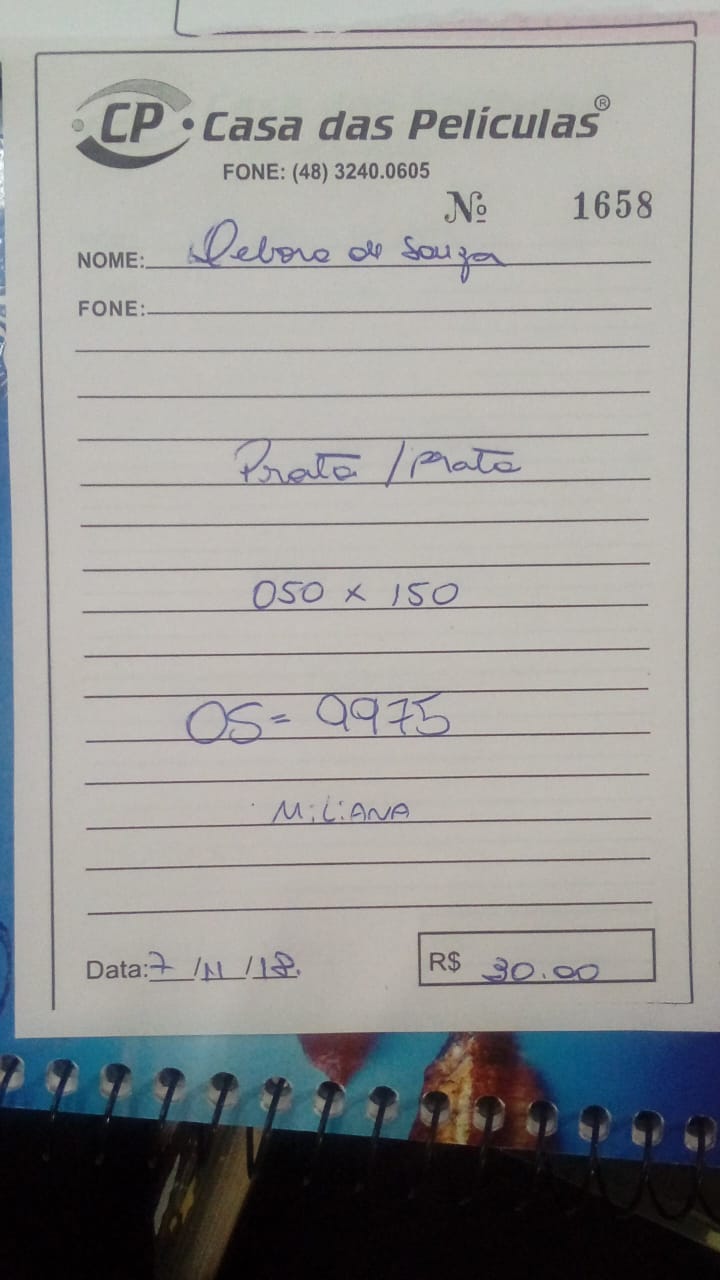 CP • Casa das Películas®
FONE: (48) 3240.0605
Nº 1658
NOME: Debora de Souza
FONE:
Prata / prata
050 x 150
OS= 9975
MiLiANA
Data: 7 /11 /18. R$ 30.00